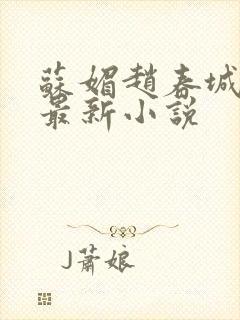 蘇媚趙春城
最新小說
J蕭娘